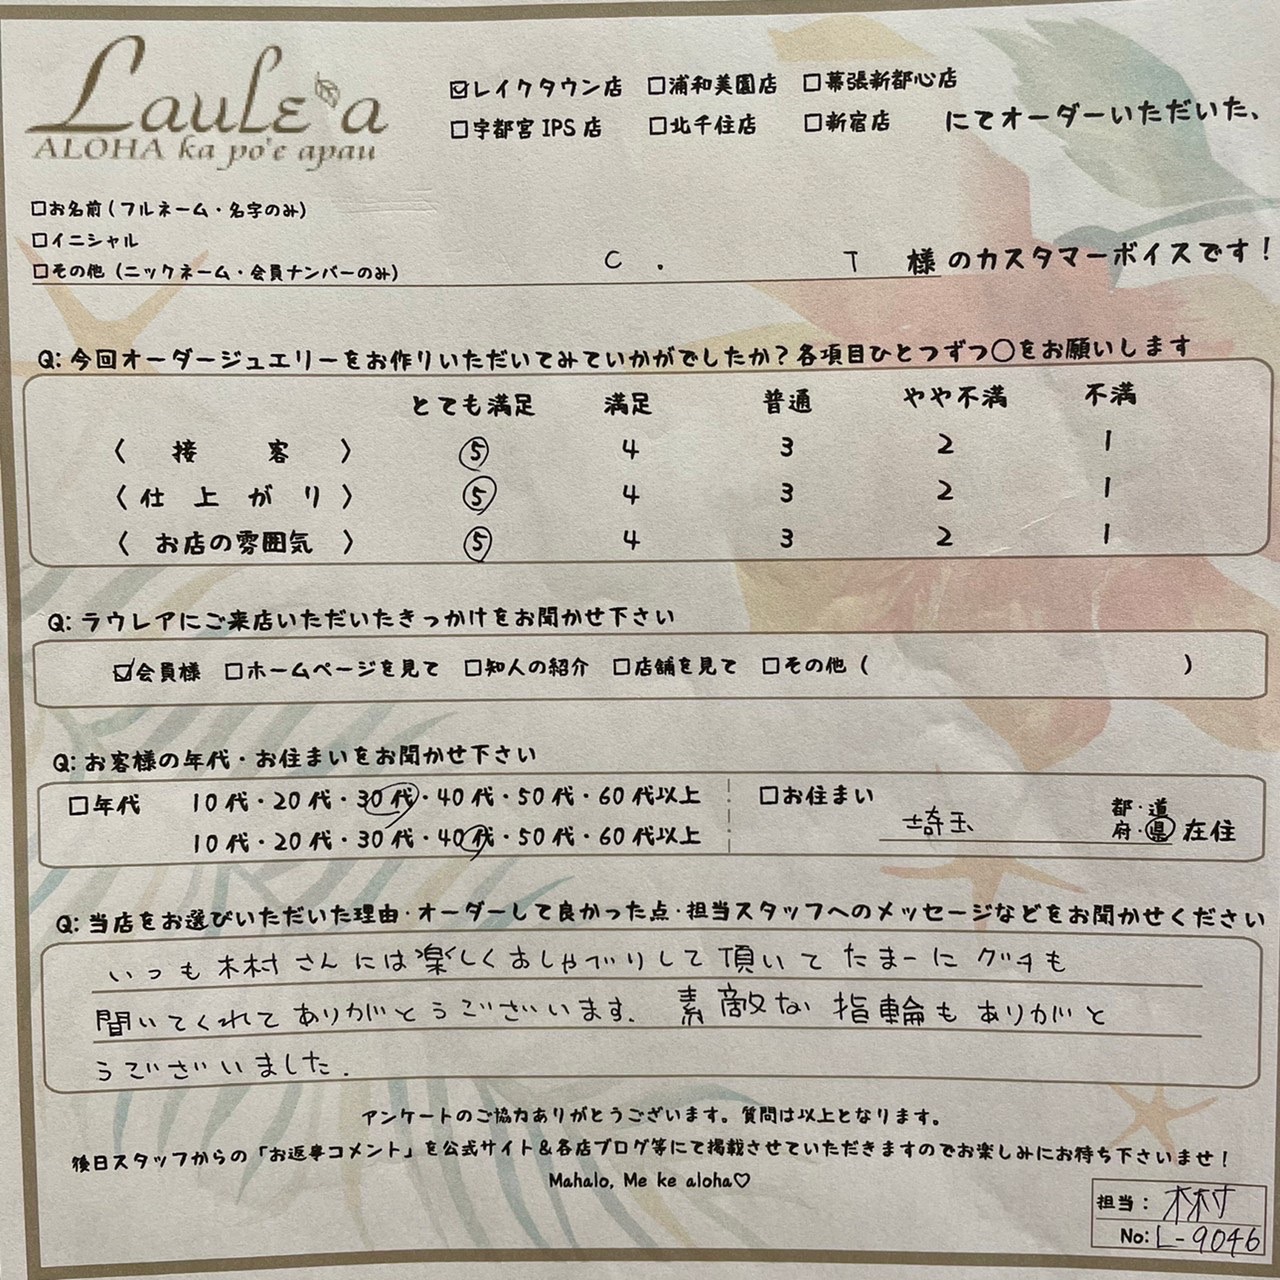 Laule'a
ALOHA ka po'e apau
☑レイクタウン店 □浦和美園店 □幕張新都心店
□宇都宮 IPS 店 □北千住店 □新宿店 にてオーダーいただいた、
□お名前(フルネーム・名字のみ)
□イニシャル
□その他(ニックネーム・会員ナンバーのみ) C . T 様のカスタマーボイスです!
Q: 今回オーダージュエリーをお作りいただいてみていかがでしたか?各項目ひとつずつ〇をお願いします
とても満足 満足 普通 やや不満 不満
〈 接 客 〉 ⑤ 4 3 2 1
〈 仕 上 が り 〉 ⑤ 4 3 2 1
〈 お店の雰囲気 〉 ⑤ 4 3 2 1
Q: ラウレアにご来店いただいたきっかけをお聞かせ下さい
☑会員様 □ホームページを見て □知人の紹介 □店舗を見て □その他( )
Q: お客様の年代・お住まいをお聞かせ下さい
□年代 10代・20代・30代・40代・50代・60代以上 □お住まい
10代・20代・30代・40代・50代・60代以上 埼玉 都・道 府・県 在住
Q: 当店をお選びいただいた理由・オーダーして良かった点・担当スタッフへのメッセージなどをお聞かせください
いつも木村さんには楽しくおしゃべりして頂いてたまーにグチも
聞いてくれてありがとうございます. 素敵な指輪もありがと
うございました.
アンケートのご協力ありがとうございます。質問は以上となります。
後日スタッフからの「お返事コメント」を公式サイト&各店ブログ等にて掲載させていただきますのでお楽しみにお待ち下さいませ!
Mahalo, Me ke aloha♡
担当: 木村
No: L-9046